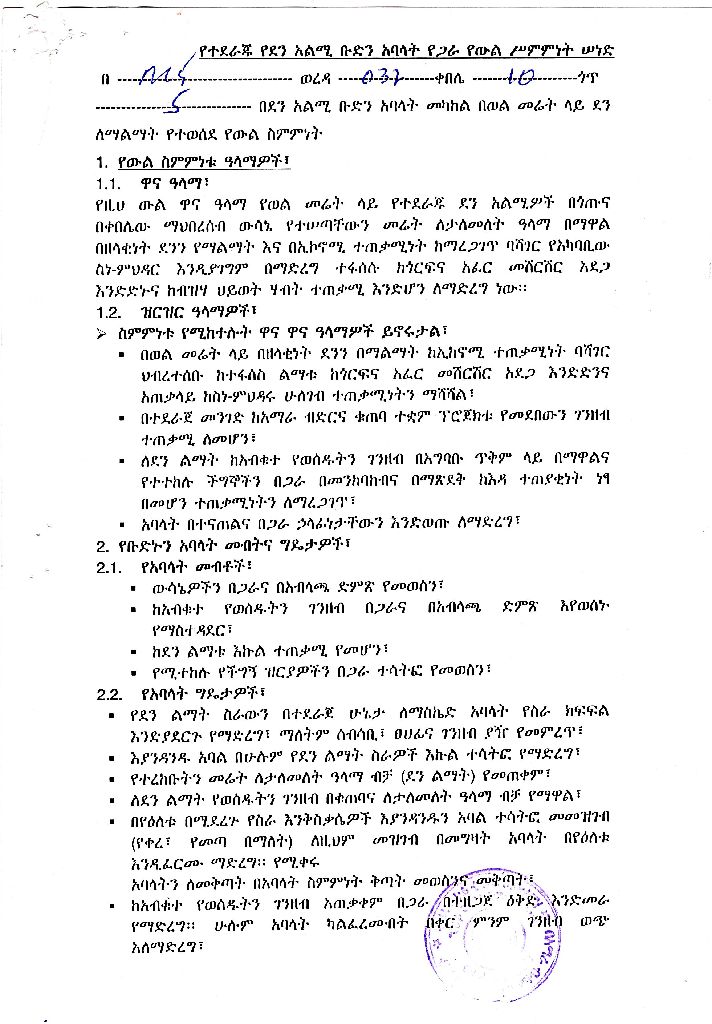 የተደራጁ የደን አልሚ ቡድን አባላት የጋራ የውል ሥምምነት ሠነድ
በ ---------- ወረዳ ---032---ቀበሌ ---10---ጎጥ
-----5----- በደን አልሚ ቡድን አባላት መካከል በወል መሬት ላይ ደን
ለማልማት የተወሰደ የውል ስምምነት
1. የውል ስምምነቱ ዓላማዎች፤
1.1. ዋና ዓላማ፤
የዚህ ውል ዋና ዓላማ የወል መሬት ላይ የተደራጁ ደን አልሚዎች በጎጡና
በቀበሌው ማህበረሰብ ውሳኔ የተሠጣቸውን መሬት ለታለመለት ዓላማ በማዋል
በዘላቂነት ደንን የማልማት እና በኢኮኖሚ ተጠቃሚነት ከማረጋገጥ ባሻገር የአካባቢው
ስነ-ምህዳር እንዲያገግም በማድረግ ተፋሰሱ ከጎርፍና አፈር መሸርሸር አደጋ
እንድድኑና ከብዝሃ ህይወት ሃብት ተጠቃሚ እንድሆን ለማድረግ ነው።
1.2. ዝርዝር ዓላማዎች፤
➢ ስምምነቱ የሚከተሉት ዋና ዋና ዓላማዎች ይኖሩታል፤
▪ በወል መሬት ላይ በዘላቂነት ደንን በማልማት ከኢኮኖሚ ተጠቃሚነት ባሻገር
ህብረተሰቡ ከተፋሰስ ልማቱ ከጎርፍና አፈር መሸርሸር አደጋ እንድድንና
አጠቃላይ ከስነ-ምህዳሩ ሁለገብ ተጠቃሚነትን ማሻሻል፤
▪ በተደራጀ መንገድ ከአማራ ብድርና ቁጠባ ተቋም ፕሮጀክቱ የመደበውን ገንዘብ
ተጠቃሚ ለመሆን፤
▪ ለደን ልማት ከአብቁተ የወሰዱትን ገንዘብ በአግባቡ ጥቅም ላይ በማዋልና
የተተከሉ ችግኞችን በጋራ በመንከባከብና በማጽደቅ ከእዳ ተጠያቂነት ነፃ
በመሆን ተጠቃሚነትን ለማረጋገጥ፤
▪ አባላት በተናጠልና በጋራ ኃላፊነታቸውን እንድወጡ ለማድረግ፤
2. የቡድኑን አባላት መብትና ግዴታዎች፤
2.1. የአባላት መብቶች፤
▪ ውሳኔዎችን በጋራና በአብላጫ ድምጽ የመወሰን፤
▪ ከአብቁተ የወሰዱትን ገንዘብ በጋራና በአብላጫ ድምጽ እየወሰኑ
የማስተዳደር፤
▪ ከደን ልማቱ እኩል ተጠቃሚ የመሆን፤
▪ የሚተከሉ የችግኝ ዝርያዎችን በጋራ ተሳትፎ የመወሰን፤
2.2. የአባላት ግዴታዎች፤
▪ የደን ልማት ስራውን በተደራጀ ሁኔታ ለማስኬድ አባላት የስራ ክፍፍል
እንድያደርጉ የማድረግ፤ ማለትም ሰብሳቢ፤ ፀሀፊና ገንዘብ ያዥ የመምረጥ፤
▪ እያንዳንዱ አባል በሁሉም የደን ልማት ስራዎች እኩል ተሳትፎ የማድረግ፤
▪ የተረከቡትን መሬት ለታለመለት ዓላማ ብቻ (ደን ልማት) የመጠቀም፤
▪ ለደን ልማት የወሰዱትን ገንዘብ በቀጠባና ለታለመለት ዓላማ ብቻ የማዋል፤
▪ በየዕለቱ በሚደረጉ የስራ እንቅስቃሴዎች እያንዳንዱን አባል ተሳትፎ መመዝገብ
(የቀረ፤ የመጣ በማለት) ለዚህም መዝገብ በመግዛት አባላት በየዕለቱ
እንዲፈርሙ ማድረግ። የሚቀሩ
አባላትን ለመቅጣት በአባላት ስምምነት ቅጣት መወሰንና መቅጣት፤
▪ ከአብቁተ የወሰዱትን ገንዘብ አጠቃቀም በጋራ በትዘጋጀ ዕቅድ እንድመራ
የማድረግ። ሁሉም አባላት ካልፈረሙበት በቀር ምንም ገንዘብ ወጭ
አለማድረግ፤